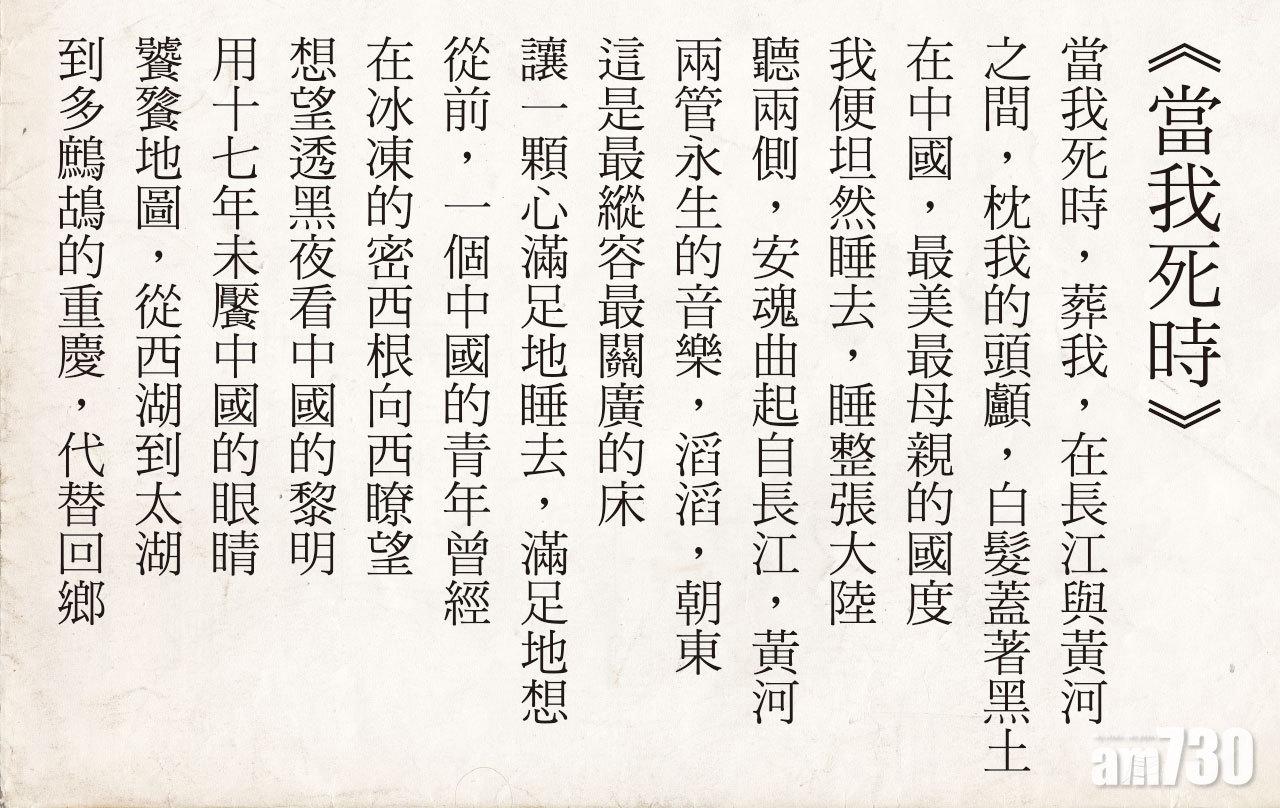 《當我死時》
當我死時，葬我，在長江與黃河
之間，枕我的頭顱，白髮蓋著黑土
在中國，最美最母親的國度
我便坦然睡去，睡整張大陸
聽兩側，安魂曲起自長江，黃河
兩管永生的音樂，滔滔，朝東
這是最縱容最關廣的床
讓一顆心滿足地睡去，滿足地想
從前，一個中國的青年曾經
在冰凍的密西根向西瞭望
想望透黑夜看中國的黎明
用十七年未饜中國的眼睛
饕餮地圖，從西湖到太湖
到多鷓鴣的重慶，代替回鄉
am730